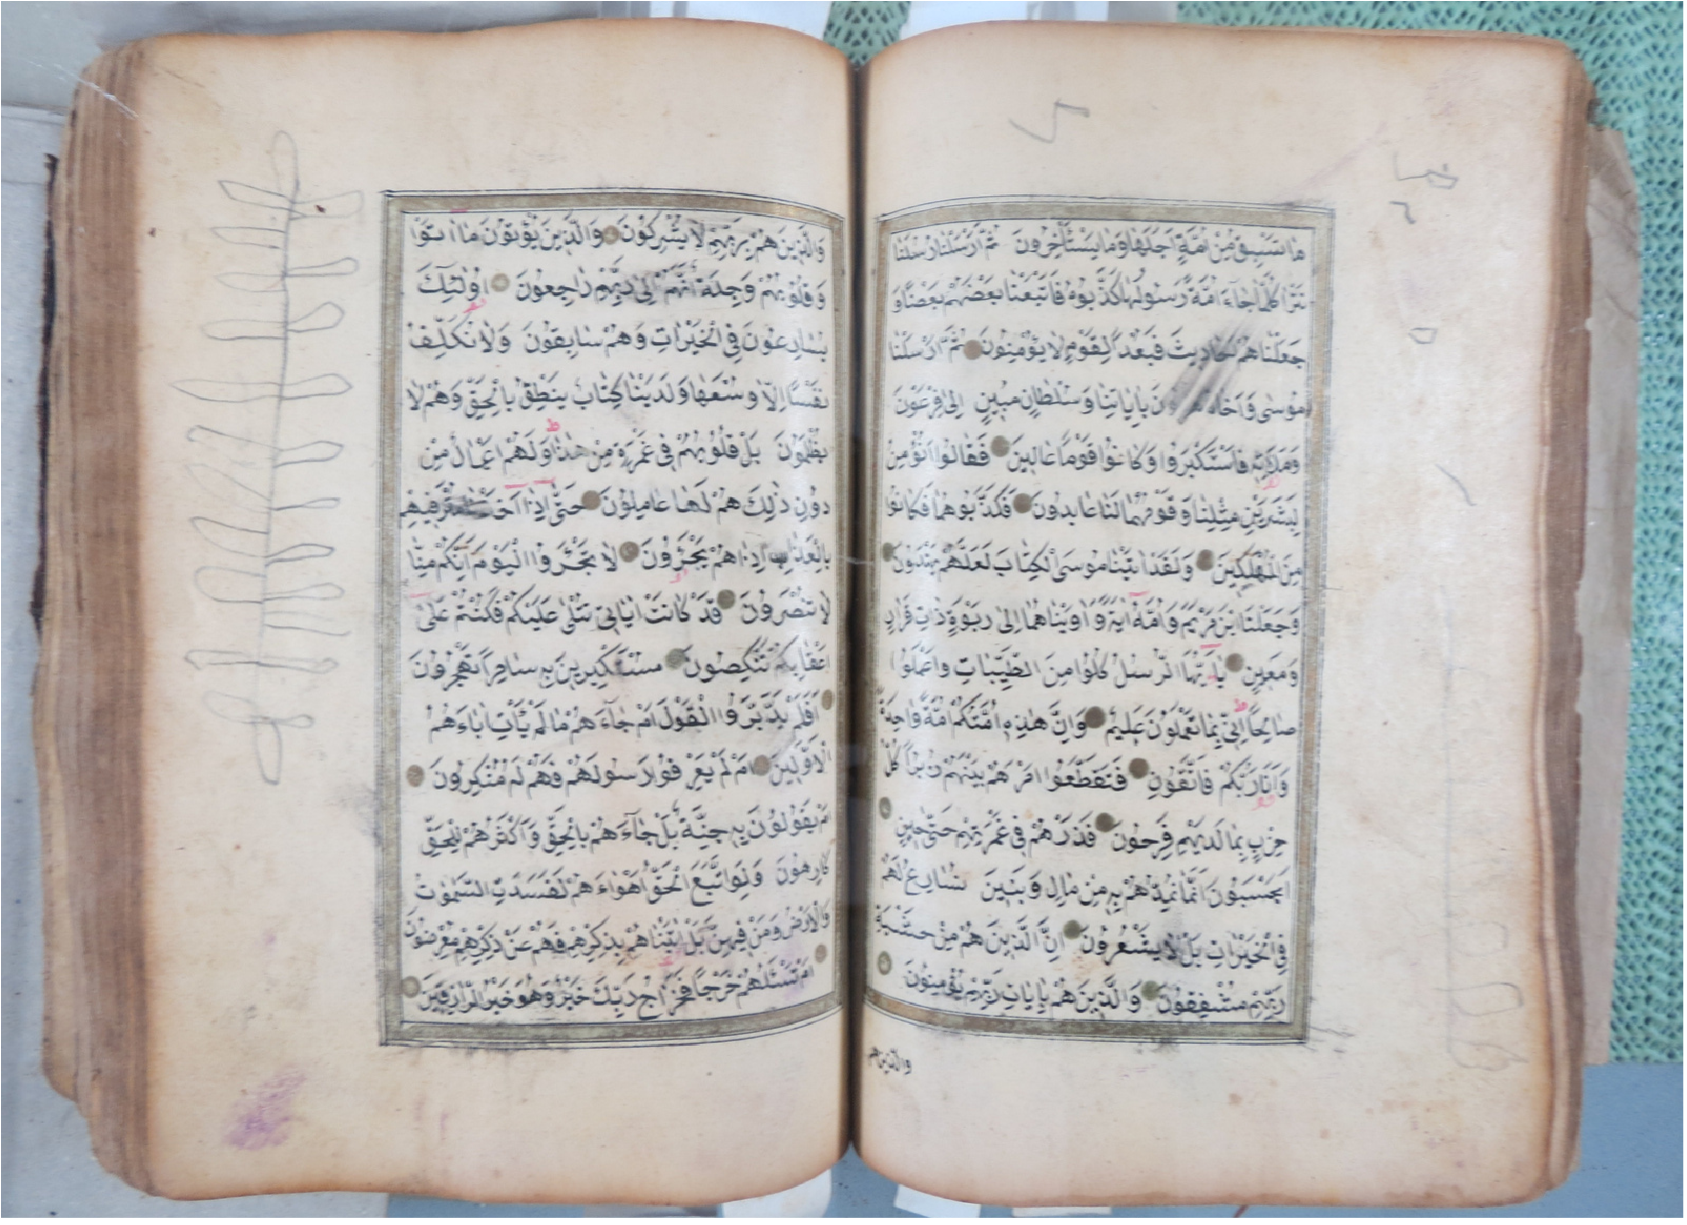 مَا تَسْبِقُ مِنْ اُمَّةٍ اَجَلَهَا وَمَا يَسْتَأْخِرُونَ ثُمَّ اَرْسَلْنَا رُسُلَنَا
تَتْرَا كُلَّمَا جَاءَ اُمَّةً رَسُولُهَا كَذَّبُوهُ فَاَتْبَعْنَا بَعْضَهُمْ بَعْضًا وَ
جَعَلْنَاهُمْ اَحَادِيثَ فَبُعْدًا لِقَوْمٍ لَا يُؤْمِنُونَ ثُمَّ اَرْسَلْنَا
مُوسٰى وَاَخَاهُ هٰرُونَ بِاٰيَاتِنَا وَسُلْطَانٍ مُبِينٍ اِلٰى فِرْعَوْنَ
وَمَلَائِهِ فَاسْتَكْبَرُوا وَكَانُوا قَوْمًا عَالِينَ فَقَالُوا اَنُؤْمِنُ
لِبَشَرَيْنِ مِثْلِنَا وَقَوْمُهُمَا لَنَا عَابِدُونَ فَكَذَّبُوهُمَا فَكَانُوا
مِنَ الْمُهْلَكِينَ وَلَقَدْ اٰتَيْنَا مُوسَى الْكِتَابَ لَعَلَّهُمْ يَهْتَدُونَ
وَجَعَلْنَا ابْنَ مَرْيَمَ وَاُمَّهُ اٰيَةً وَاٰوَيْنَاهُمَا اِلٰى رَبْوَةٍ ذَاتِ قَرَارٍ
وَمَعِينٍ يَا اَيُّهَا الرُّسُلُ كُلُوا مِنَ الطَّيِّبَاتِ وَاعْمَلُوا
صَالِحًا اِنِّي بِمَا تَعْمَلُونَ عَلِيمٌ وَاِنَّ هٰذِهِ اُمَّتُكُمْ اُمَّةً وَاحِدَةً
وَاَنَا رَبُّكُمْ فَاتَّقُونِ فَتَقَطَّعُوا اَمْرَهُمْ بَيْنَهُمْ زُبُرًا كُلُّ
حِزْبٍ بِمَا لَدَيْهِمْ فَرِحُونَ فَذَرْهُمْ فِي غَمْرَتِهِمْ حَتّٰى حِينٍ
اَيَحْسَبُونَ اَنَّمَا نُمِدُّهُمْ بِهِ مِنْ مَالٍ وَبَنِينَ نُسَارِعُ لَهُمْ
فِي الْخَيْرَاتِ بَلْ لَا يَشْعُرُونَ اِنَّ الَّذِينَ هُمْ مِنْ خَشْيَةِ
رَبِّهِمْ مُشْفِقُونَ وَالَّذِينَ هُمْ بِاٰيَاتِ رَبِّهِمْ يُؤْمِنُونَ
والذين هم
وَالَّذِينَ هُمْ بِرَبِّهِمْ لَا يُشْرِكُونَ وَالَّذِينَ يُؤْتُونَ مَا اٰتَوْا
وَقُلُوبُهُمْ وَجِلَةٌ اَنَّهُمْ اِلٰى رَبِّهِمْ رَاجِعُونَ اُولٰئِكَ
يُسَارِعُونَ فِي الْخَيْرَاتِ وَهُمْ لَهَا سَابِقُونَ وَلَا نُكَلِّفُ
نَفْسًا اِلَّا وُسْعَهَا وَلَدَيْنَا كِتَابٌ يَنْطِقُ بِالْحَقِّ وَهُمْ لَا
يُظْلَمُونَ بَلْ قُلُوبُهُمْ فِي غَمْرَةٍ مِنْ هٰذَا وَلَهُمْ اَعْمَالٌ مِنْ
دُونِ ذٰلِكَ هُمْ لَهَا عَامِلُونَ حَتّٰى اِذَا اَخَذْنَا مُتْرَفِيهِمْ
بِالْعَذَابِ اِذَا هُمْ يَجْئَرُونَ لَا تَجْئَرُوا الْيَوْمَ اِنَّكُمْ مِنَّا
لَا تُنْصَرُونَ قَدْ كَانَتْ اٰيَاتِي تُتْلٰى عَلَيْكُمْ فَكُنْتُمْ عَلٰى
اَعْقَابِكُمْ تَنْكِصُونَ مُسْتَكْبِرِينَ بِهِ سَامِرًا تَهْجُرُونَ
اَفَلَمْ يَدَّبَّرُوا الْقَوْلَ اَمْ جَاءَهُمْ مَا لَمْ يَأْتِ اٰبَاءَهُمُ
الْاَوَّلِينَ اَمْ لَمْ يَعْرِفُوا رَسُولَهُمْ فَهُمْ لَهُ مُنْكِرُونَ
اَمْ يَقُولُونَ بِهِ جِنَّةٌ بَلْ جَاءَهُمْ بِالْحَقِّ وَاَكْثَرُهُمْ لِلْحَقِّ
كَارِهُونَ وَلَوِ اتَّبَعَ الْحَقُّ اَهْوَاءَهُمْ لَفَسَدَتِ السَّمٰوَاتُ
وَالْاَرْضُ وَمَنْ فِيهِنَّ بَلْ اَتَيْنَاهُمْ بِذِكْرِهِمْ فَهُمْ عَنْ ذِكْرِهِمْ مُعْرِضُونَ
اَمْ تَسْئَلُهُمْ خَرْجًا فَخَرَاجُ رَبِّكَ خَيْرٌ وَهُوَ خَيْرُ الرَّازِقِينَ